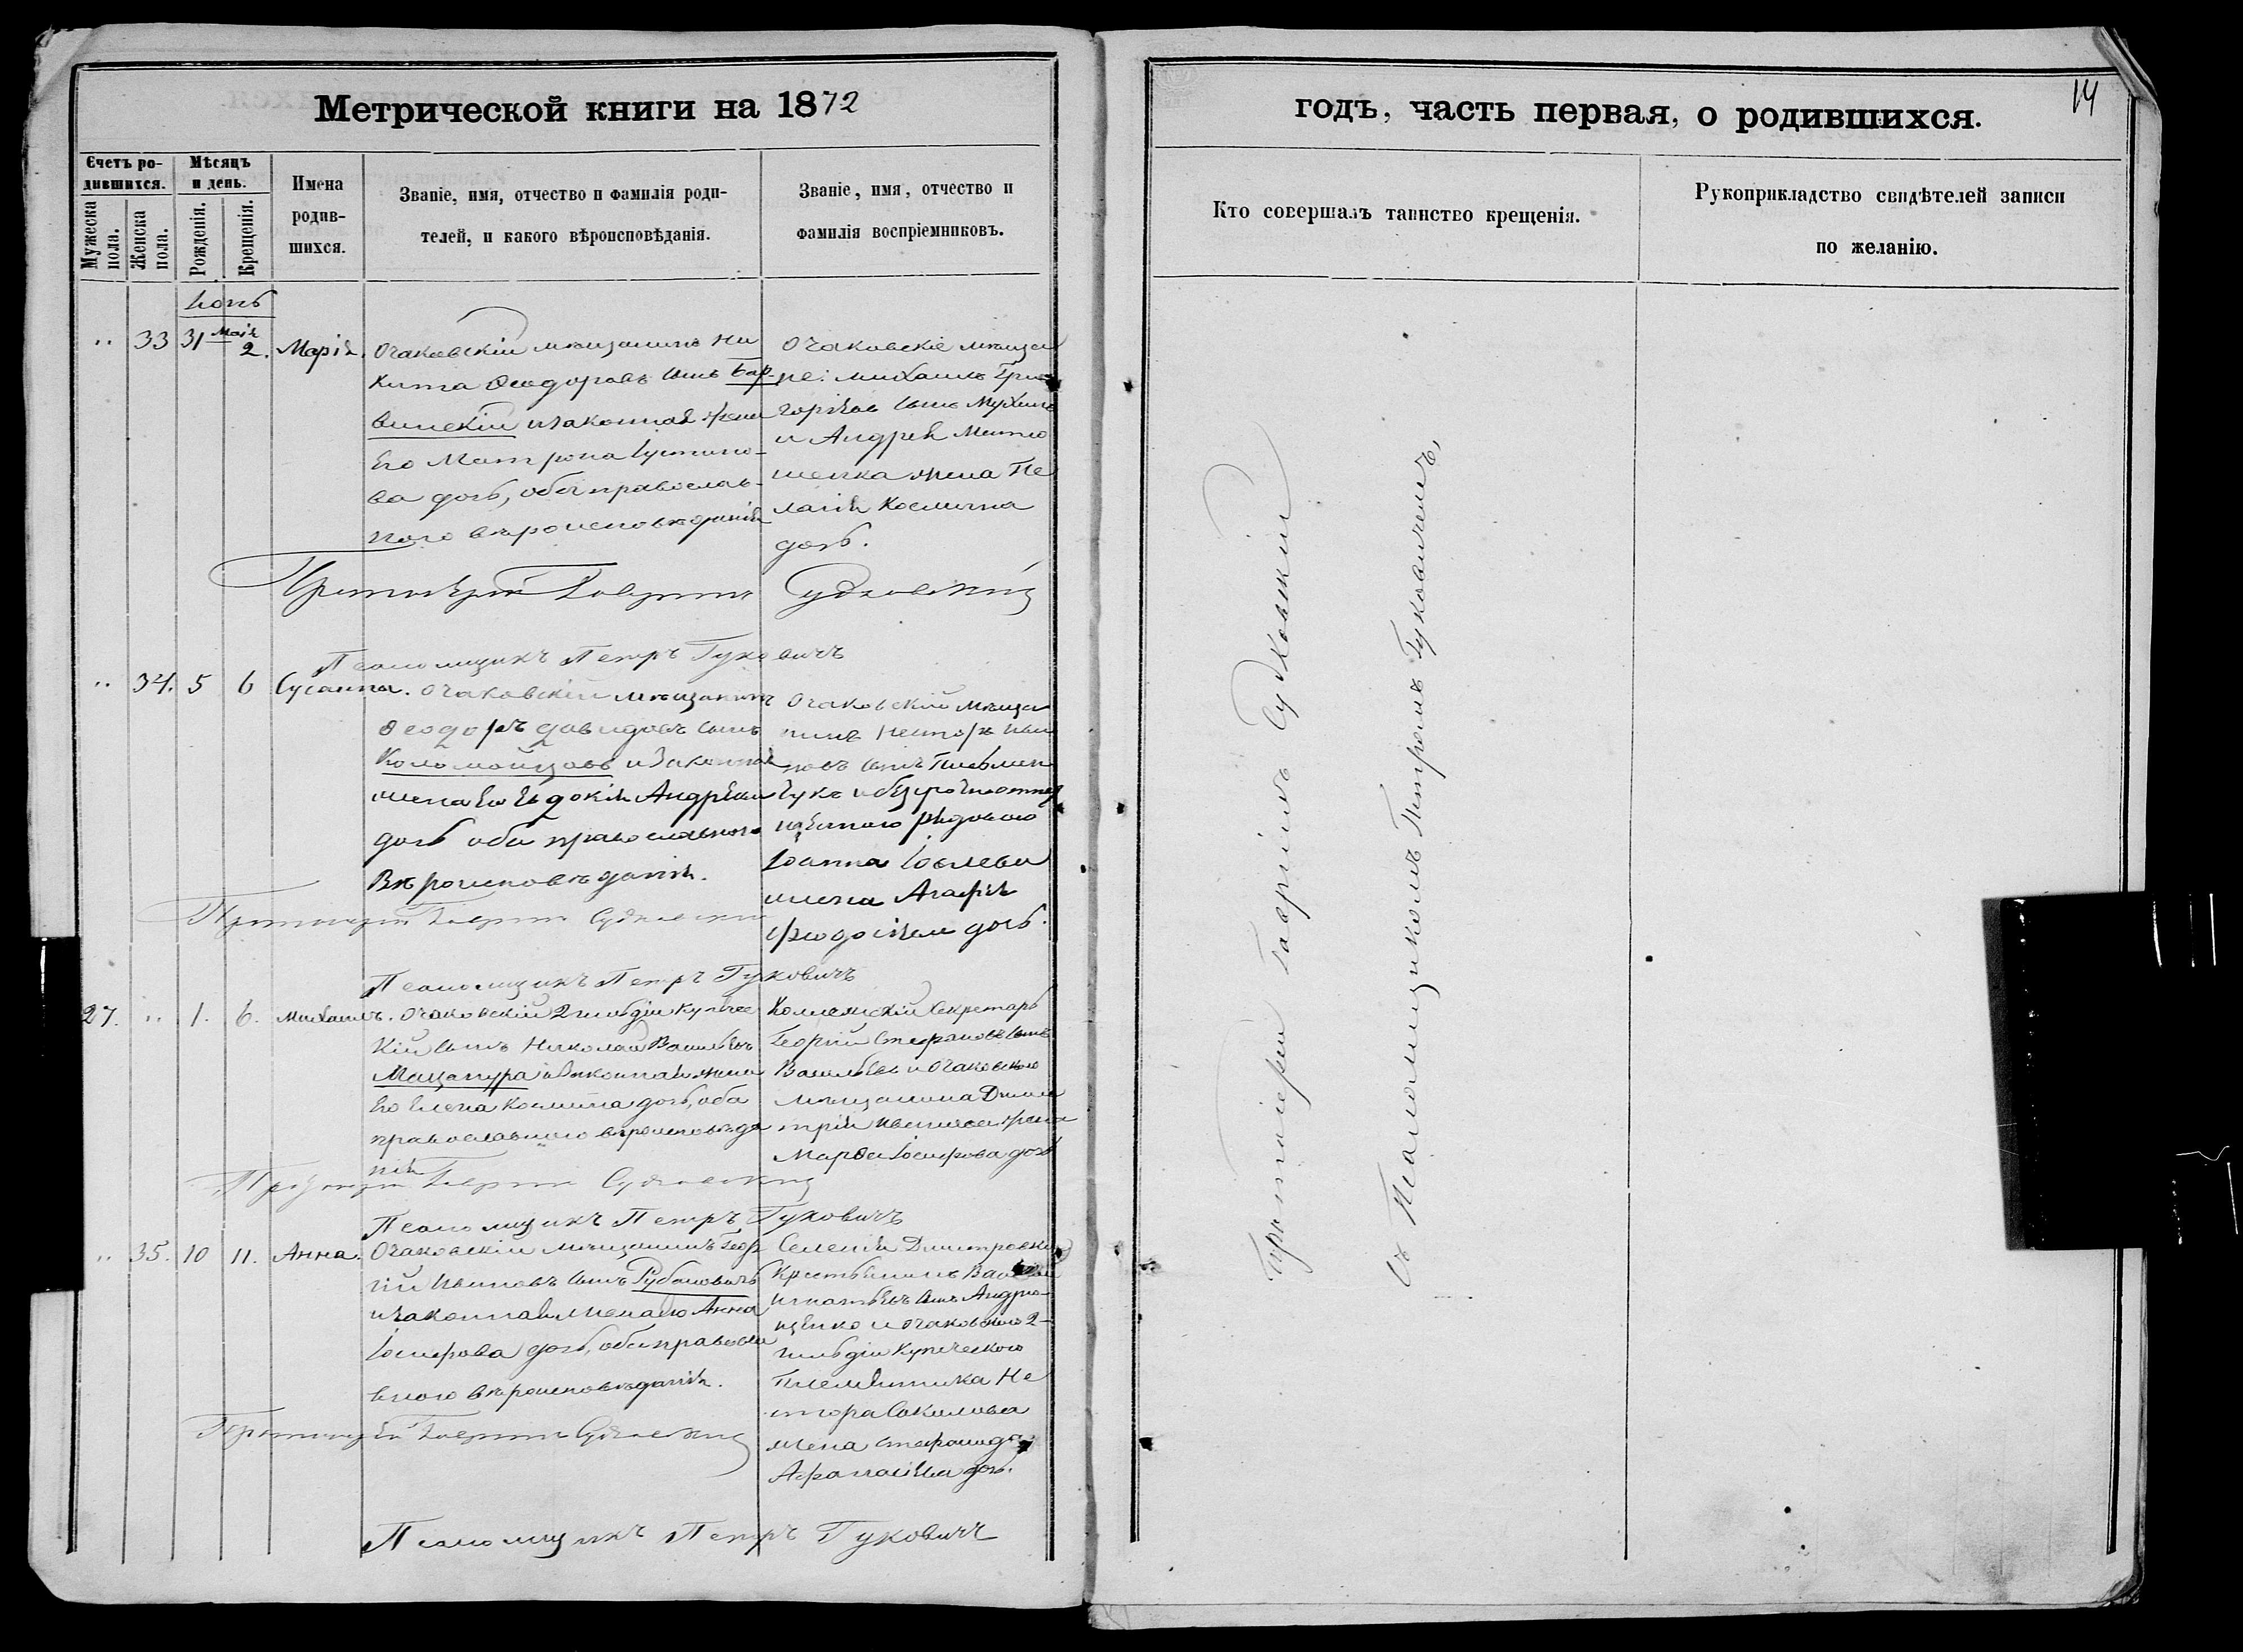 Метрической книги на 1872
годъ, часть первая, о родившихся.
14
Счетъ ро-
дившихся.
Мѣсяцъ
и день.
Мужеска
пола.
Женска
пола.
Рожденія.
Крещенія.
Имена
родив-
шихся.
Званіе, имя, отчество и фамилія роди-
телей, и какого вѣроисповѣданія.
Званіе, имя, отчество и
фамилія воспріемниковъ.
Кто совершалъ таинство крещенія.
Рукоприкладство свидѣтелей записи
по желанію.
Іюнь
" 33 31 Мая 2. Марія.
Очаковскій мѣщанинъ Ни
кита Ѳеодоровъ сынъ Бар-
винскій и законная жена
Его Матрона Іустино-
ва дочь, оба православ-
ного вѣроисповѣданія
Очаковскіе мѣща
не: Михаилъ Гри
горіевъ сынъ Мухинъ
и Андрея
жена Пе
лагія Космина
дочь.
Протоіерей Гавріилъ Судковскій
Псаломщикъ Петръ Гуковичъ
" 34. 5 6 Сусанна.
Очаковскій мѣщанинъ
Ѳеодоръ Давидовъ сынъ
Коломойцовъ и законная
жена Его Евдокія Андрѣева
дочь оба православного
Вѣроисповѣданія.
Очаковскій мѣща
нинъ Нестoръ Ива
новъ сынъ Письмен
чукъ и безсрочноотпу
щенного рядового
Іоанна Іовлева
жена Агафія
Ѳеодосіева дочь.
Протоіерей Гавріилъ Судковскій
Псаломщикъ Петръ Гуковичъ
27. " 1. 6. Михаилъ.
Очаковскій 2 гильдіи купечес
кій сынъ Николай Васильевъ
Мацапура и законная жена
Его Елена Космина дочь, оба
православного вѣроисповѣда
нія
Коллежскій Секретарь
Георгій Стефановъ сынъ
Васильевъ и Очаковского
мѣщанина Дими
трія жена
Марѳа Іосифова дочь
Протоіерей Гавріилъ Судковскій
Псаломщикъ Петръ Гуковичъ
" 35. 10 11. Анна.
Очаковскій мѣщанинъ Геор
гій Ивановъ сынъ Рубановичъ
и законная жена его Анна
Іосифова дочь, оба правосла
вного вѣроисповѣданія.
Селенія Димитровки
Крестьянинъ Василій
Игнатьевъ сынъ Андрю-
щенко и Очаковского 2-
гильдіи Купеческого
Племянника Не
стора Сокилова
жена Стефанида
Афанасіева дочь.
Протоіерей Гавріилъ Судковскій
Псаломщикъ Петръ Гуковичъ
Протоіерей Гавріилъ Судковскій
съ Псаломщикомъ Петромъ Гуковичемъ,